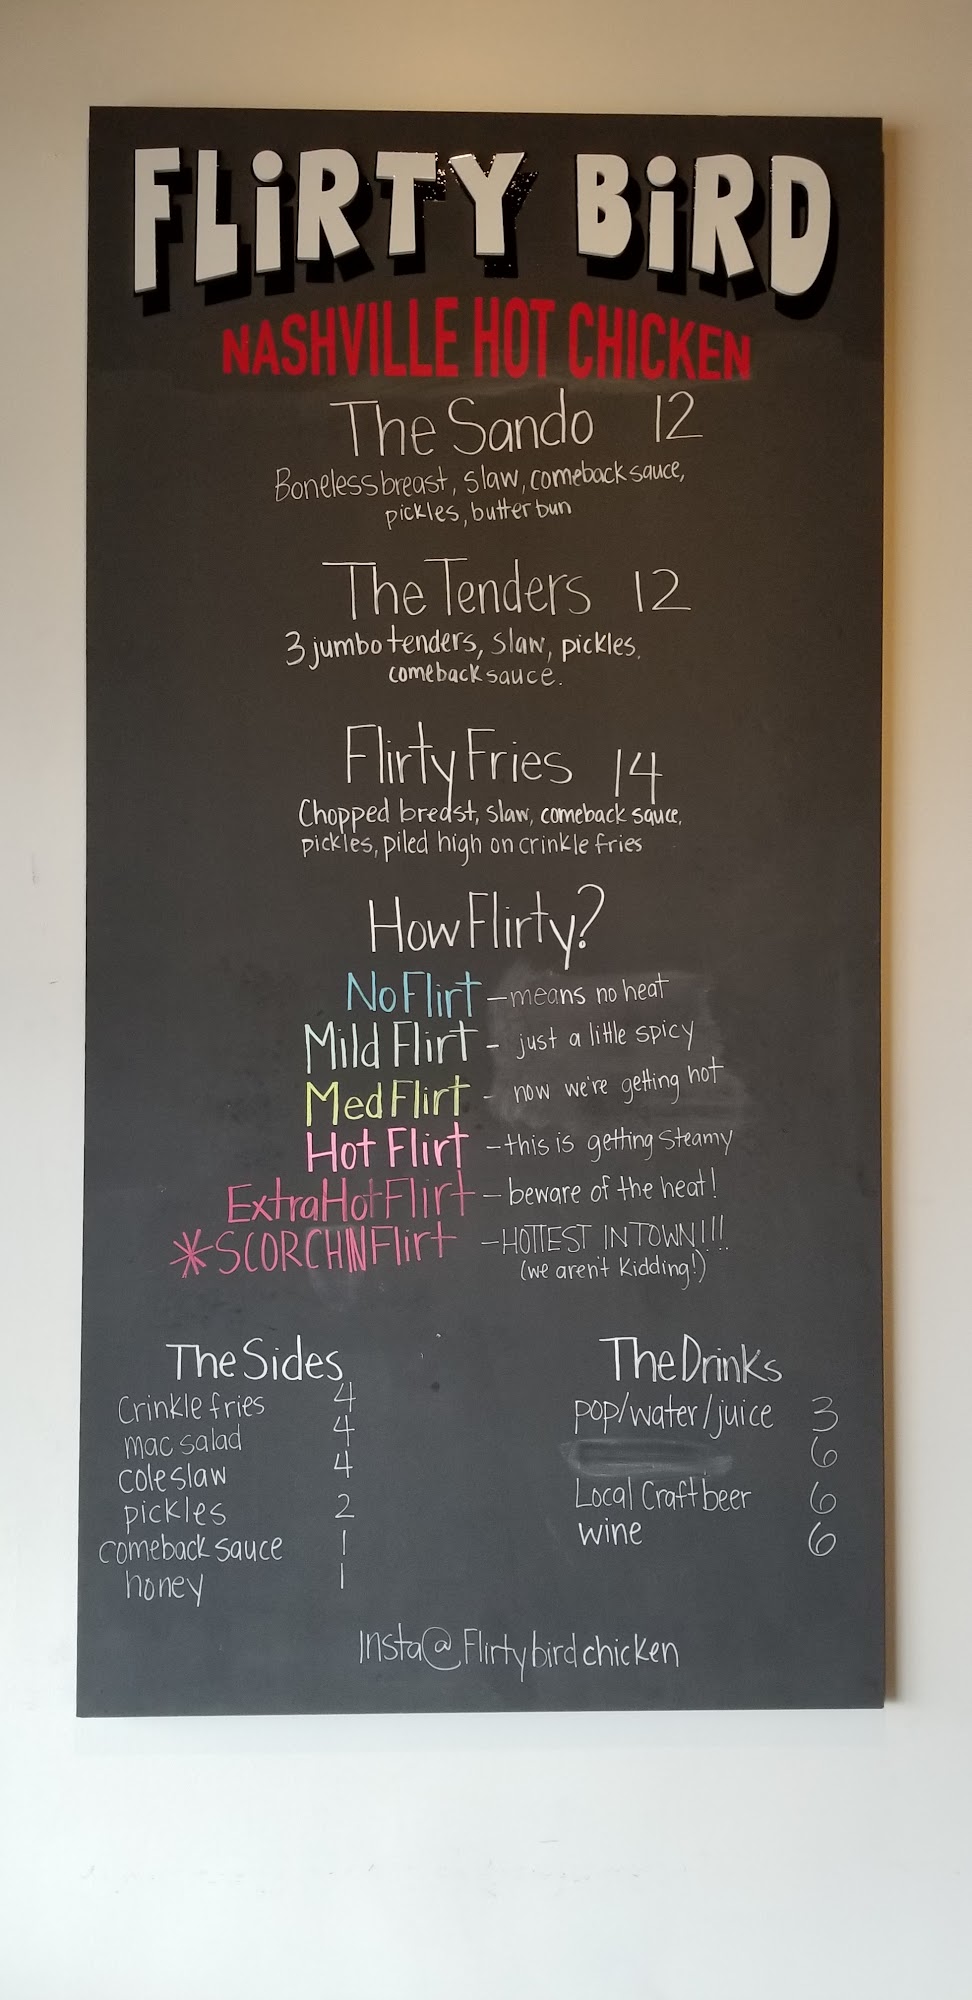 FLiRTY BiRD
NASHVILLE HOT CHICKEN
The Sando 12
Boneless breast, slaw, comeback sauce,
pickles, butter bun
The Tenders 12
3 jumbo tenders, slaw, pickles,
comeback sauce.
Flirty Fries 14
Chopped breast, slaw, comeback sauce,
pickles, piled high on crinkle fries
How Flirty?
No Flirt - means no heat
Mild Flirt - just a little spicy
Med Flirt - now we're getting hot
Hot Flirt - this is getting steamy
Extra Hot Flirt - beware of the heat!
*SCORCHIN Flirt - HOTTEST IN TOWN!!!
(we aren't kidding!)
The Sides
Crinkle fries 4
mac salad 4
coleslaw 4
pickles 2
comeback sauce 1
honey 1
The Drinks
pop/water/juice 3
6
Local Craft beer 6
wine 6
Insta@Flirtybirdchicken